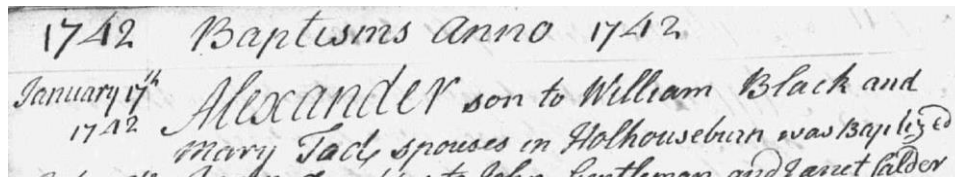 1742 Baptisms Anno 1742
January 17th Alexander son to William Black and
1742 Mary Tad, spouses in Holhouseburn was Baptized
to John Gentleman and Janet Calder